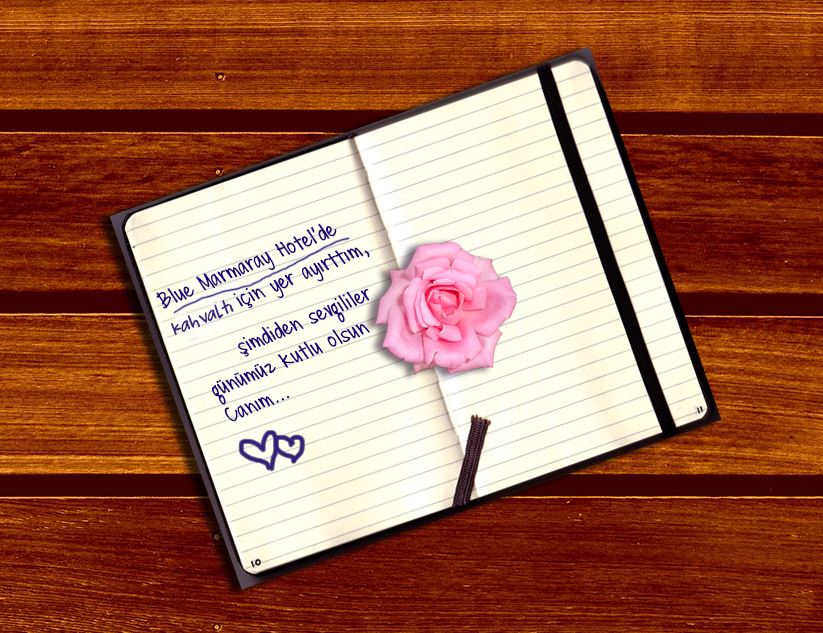 Blue Marmaray Hotel'de
kahvaltı için yer ayırttım,
şimdiden sevgililer
günümüz kutlu olsun
Canım...
10
11